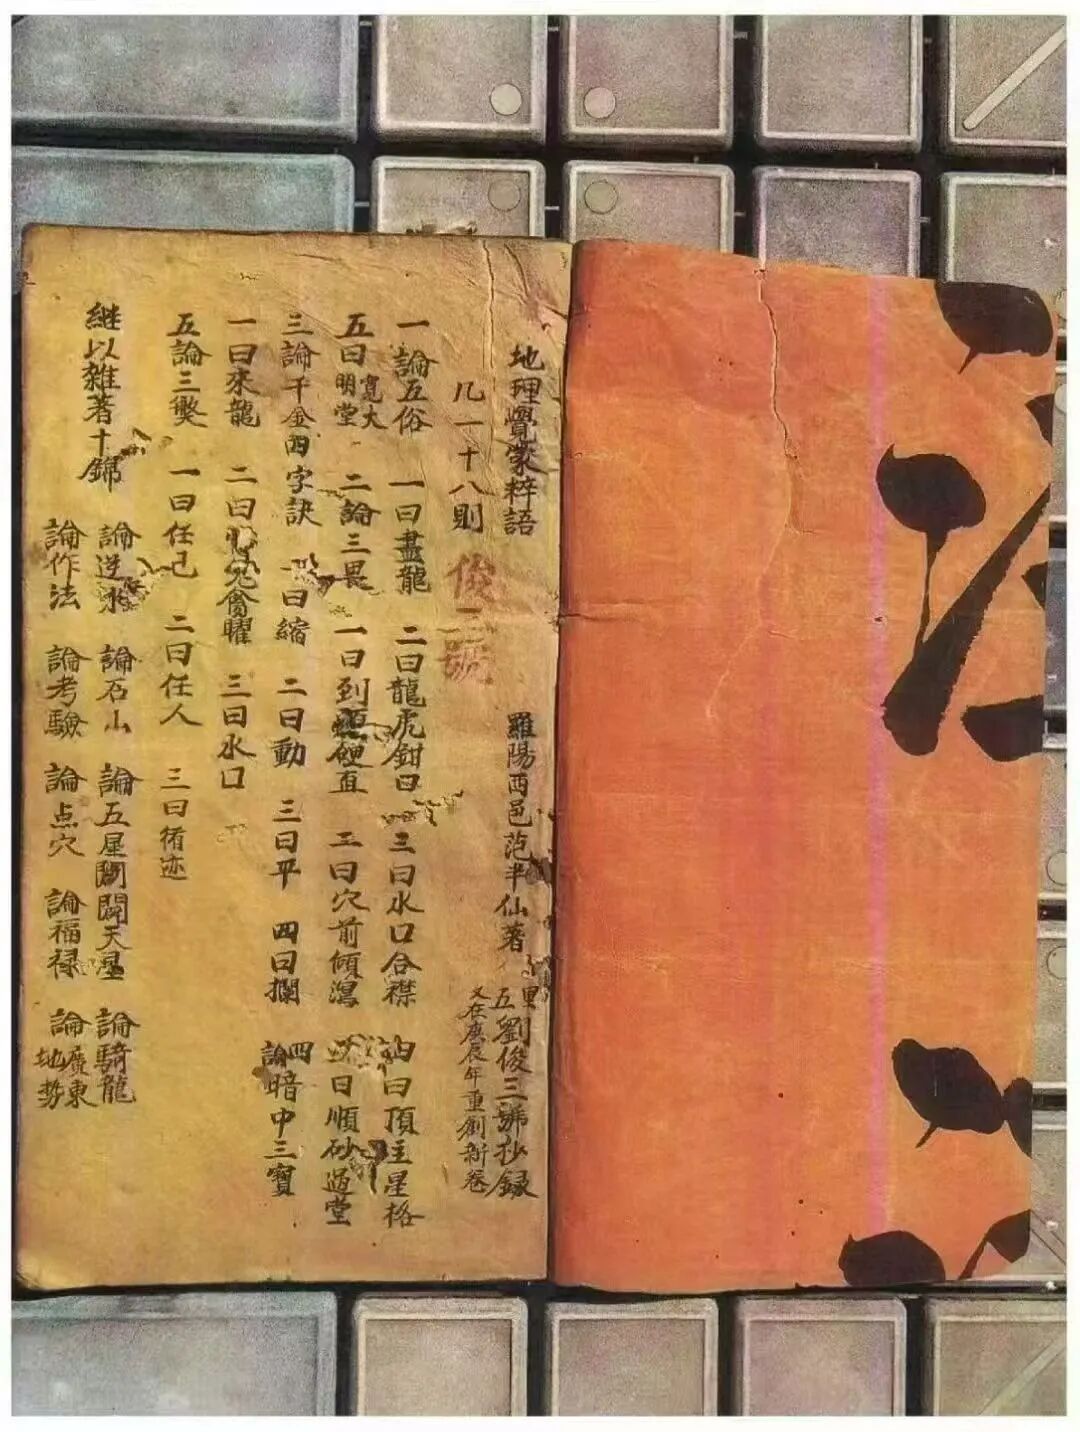 地理覺蒙粹語
羅陽西邑范半仙著
里五劉俊三號抄録
又在庚辰年重割新卷
凡一十八則
俊三號
一論五俗 一曰盡龍 二曰龍虎鉗口 三曰水口合襟 四曰頂主星格
五曰寬大明堂 二論三畏 一曰到頭硬直 二曰穴前傾瀉 三曰順砂過堂
三論千金四字訣 一曰縮 二曰動 三曰平 四曰攔 四論暗中三寶
一曰來龍 二曰 禽曜 三曰水口
五論三獘 一曰任己 二曰任人 三曰循迹
継以雜著十錦
論逆水 論石山 論五星 開天星 論騎龍
論作法 論考驗 論点穴 論福禄 論廣東地勢